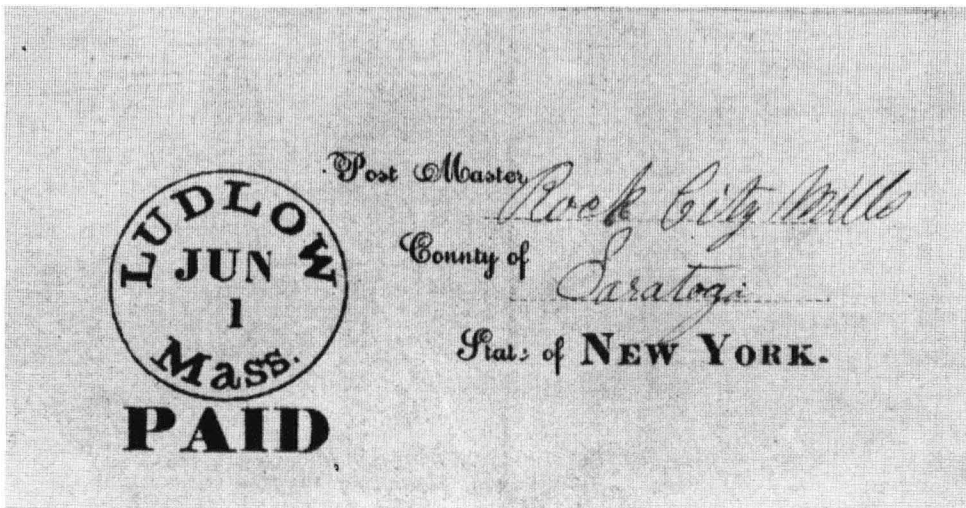 LUDLOW
JUN
1
Mass.
PAID
Post Master Rock City Mills
County of Saratoga
State of NEW YORK.